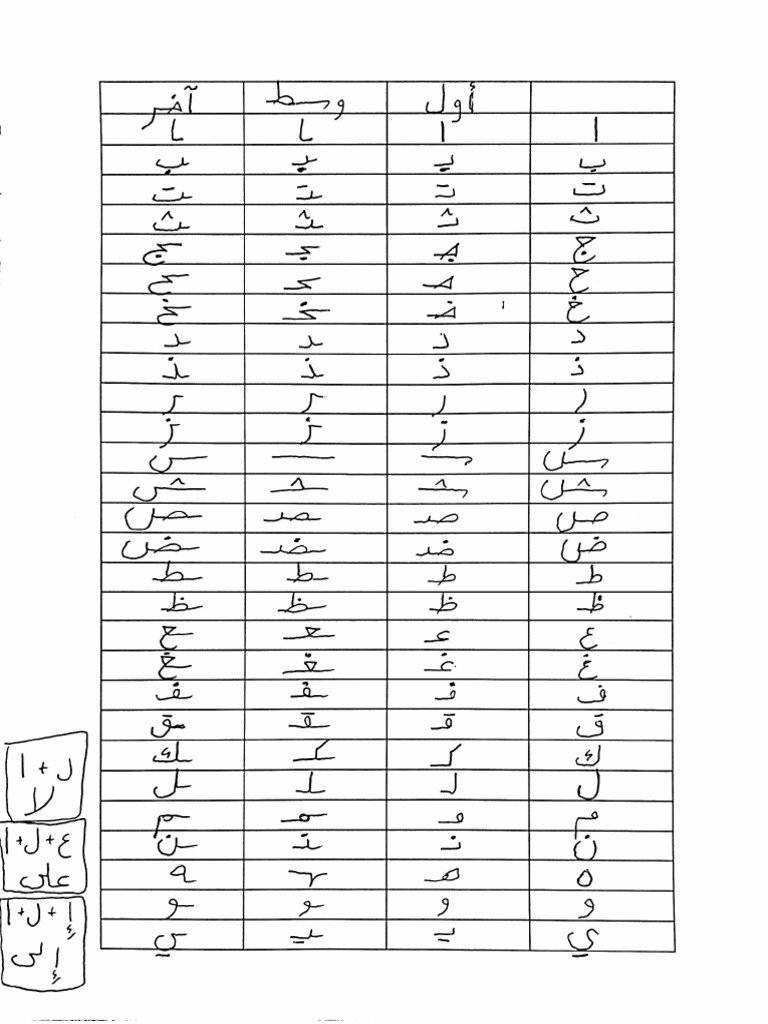 أول وسط آخر
ا ا ـا ـا
ب بـ ـبـ ـب
ت تـ ـتـ ـت
ث ثـ ـثـ ـث
ج جـ ـجـ ـج
ح حـ ـحـ ـح
خ خـ ـخـ ـخ
د د ـد ـد
ذ ذ ـذ ـذ
ر ر ـر ـر
ز ز ـز ـز
س سـ ـسـ ـس
ش شـ ـشـ ـش
ص صـ ـصـ ـص
ض ضـ ـضـ ـض
ط ط ـط ـط
ظ ظ ـظ ـظ
ع عـ ـعـ ـع
غ غـ ـغـ ـغ
ف فـ ـفـ ـف
ق قـ ـقـ ـق
ك كـ ـكـ ـك
ل لـ ـلـ ـل
م مـ ـمـ ـم
ن نـ ـنـ ـن
ه هـ ـهـ ـه
و و ـو ـو
ي يـ ـيـ ـي
ل+ا
لا
ع+ل+ا
على
إ+ل+ا
إلى